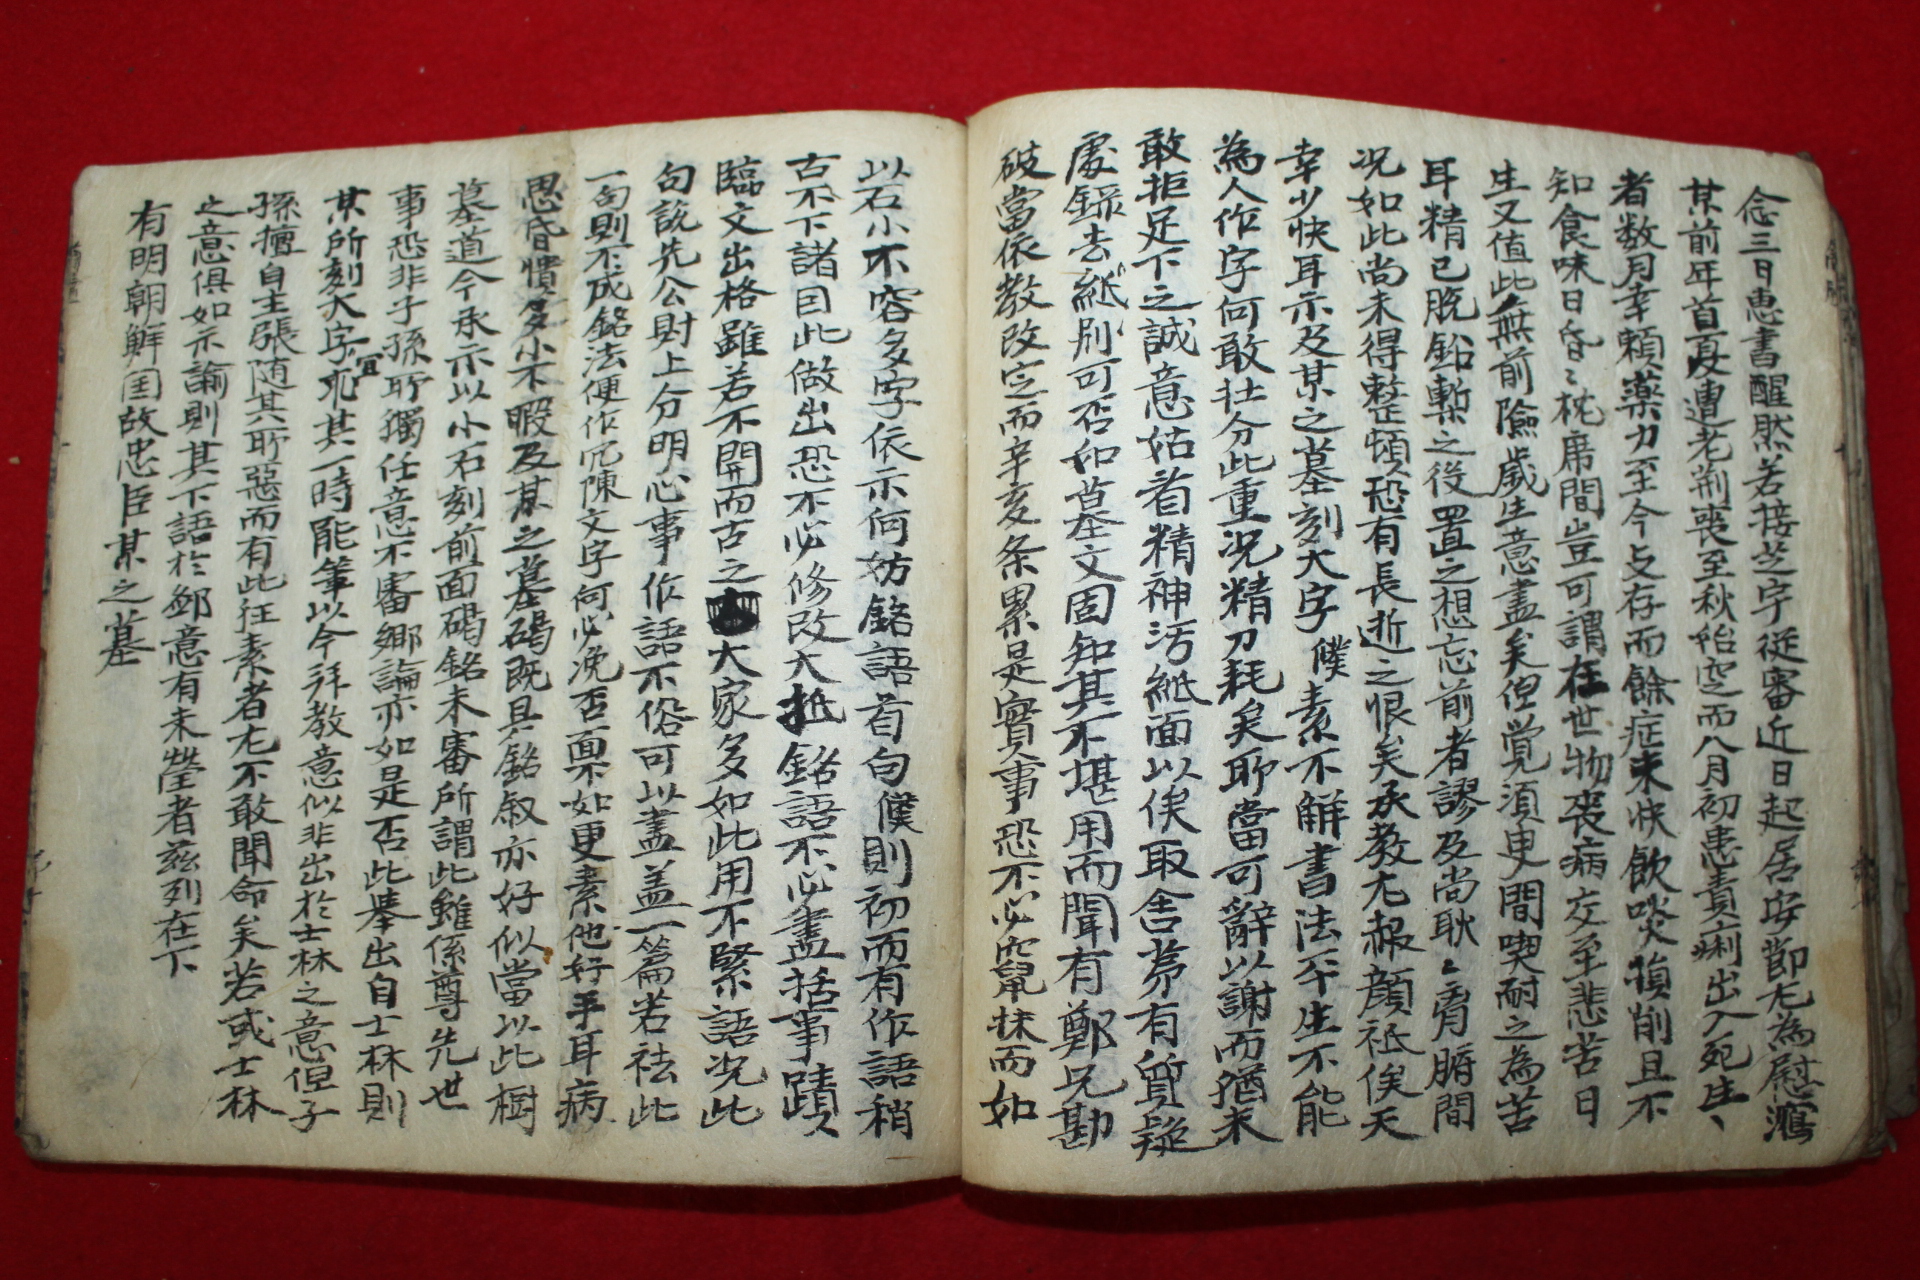 念三日惠書醒然若接芝字從審近日起居安節尤為慰瀉
某前年首夏遭老荊喪至秋始空而八月初患責痢出入死生、
者数月幸賴藥力至今支存而餘症未快飲啖損削且不
知食味日昏〻枕席間豈可謂在世物喪病交至悲苦日
生又值此無前險歲生意盡矣但覺須臾間喫耐之為苦
耳精已脫鉛槧之役置之想忘前者謬及尚耿〻膺腑間
况如此尚未得整頓恐有長逝之恨矣承教尤赧顏祗俟天
幸少快耳示及某之墓刻大字僕素不解書法平生不能
為人作字何敢壮分此重况精力耗矣耶當可辭以謝而猶未
敢拒足下之誠意姑着精神汚紙面以俟取舍茅有質疑
處錄去紙別可否如墓文固知其不堪用而聞有鄭兄勘
破當依教改定而辛亥条累是實事恐不必竄抹而如
以石小不容多字依示何妨銘語首句僕則初而有作語稍
古不下諸目此做出恐不必修改大抵銘語不必盡括事蹟
臨文出格雖若不開而古之大家多如此用不緊語况此
句說先公財上分明心事作語不俗可以盖盖一篇若祛此
一句則不成銘法便作冗陳文字何必浼否面不如更素他好手耳病
思昏憒多小不暇及某之墓碣既具銘叙亦好似當以此樹
墓道今承示以小石刻前面碣銘未審所謂此雖係尊先世
事恐非子孫所獨任意不審鄉論亦如是否此擧出自士林則
某所刻大字宜非其一時能筆以今拜教意似非出於士林之意但子
孫擅自主張随其所惡而有此徃素者尤不敢聞命矣若或士林
之意俱如示論則其下語於鄙意有未瑩者玆列在下
有明朝鮮国故忠臣某之墓